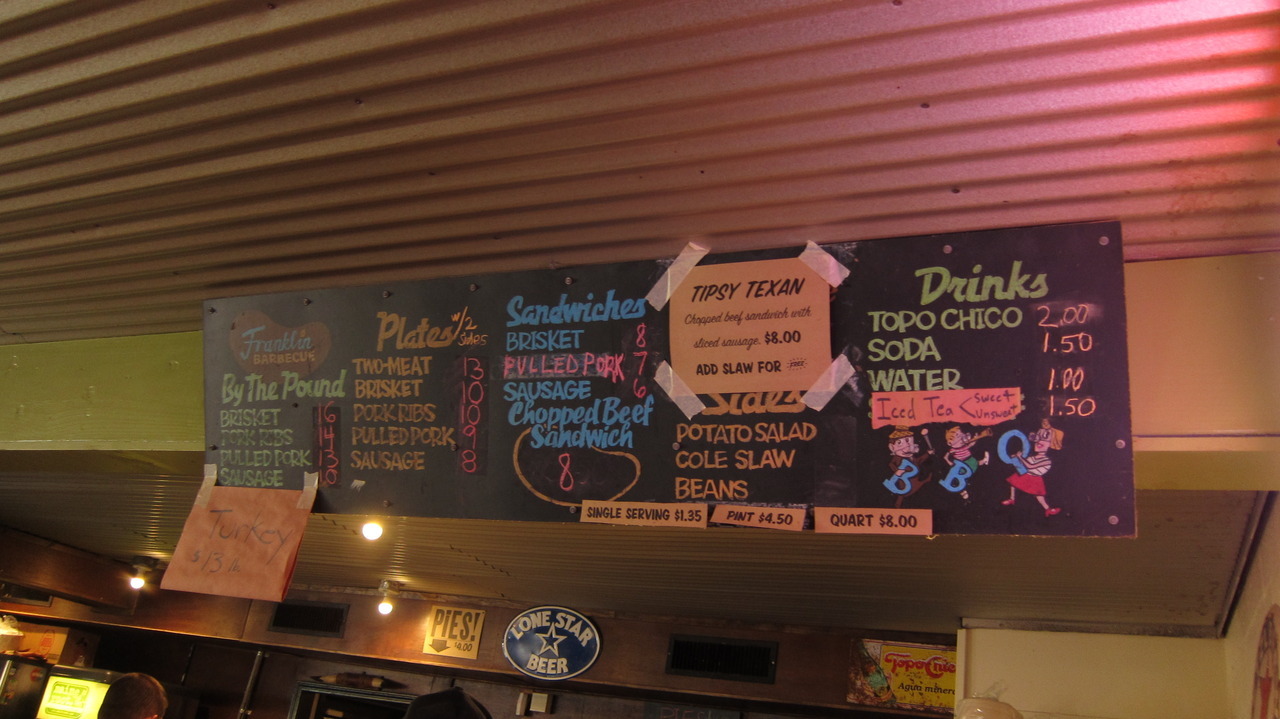 Franklin
BARBECUE
By The Pound
BRISKET 16
PORK RIBS 14
PULLED PORK 13
SAUSAGE 10
Turkey
$13 lb
Plates w/2 sides
TWO-MEAT 13
BRISKET 10
PORK RIBS 10
PULLED PORK 9
SAUSAGE 8
Sandwiches
BRISKET 8
PULLED PORK 7
SAUSAGE 6
Chopped Beef
Sandwich
8
TIPSY TEXAN
Chopped beef sandwich with
sliced sausage. $8.00
ADD SLAW FOR FREE
Sides
POTATO SALAD
COLE SLAW
BEANS
SINGLE SERVING $1.35
PINT $4.50
QUART $8.00
Drinks
TOPO CHICO 2.00
SODA 1.50
WATER 1.00
Iced Tea < Sweet Unsweet 1.50
BBQ
PIES!
$4.00
LONE STAR
BEER
Topo Chico
Agua minera